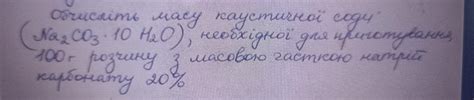 Обчисліть масу каустичної соди
(Na2CO3 · 10 H2O), необхідної для приготування
100 г розчину з масовою часткою натрій
карбонату 20%